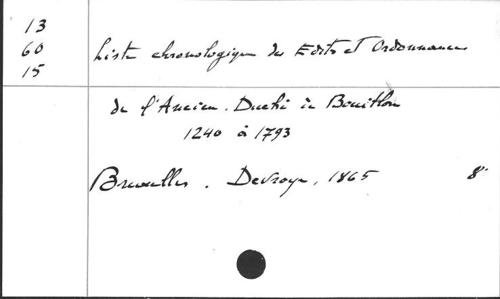 13
60
15
Liste chronologique des Edits et Ordonnances
de l'Ancien Duché de Bouillon
1240 à 1793
Bruxelles. Devroye, 1865 8°